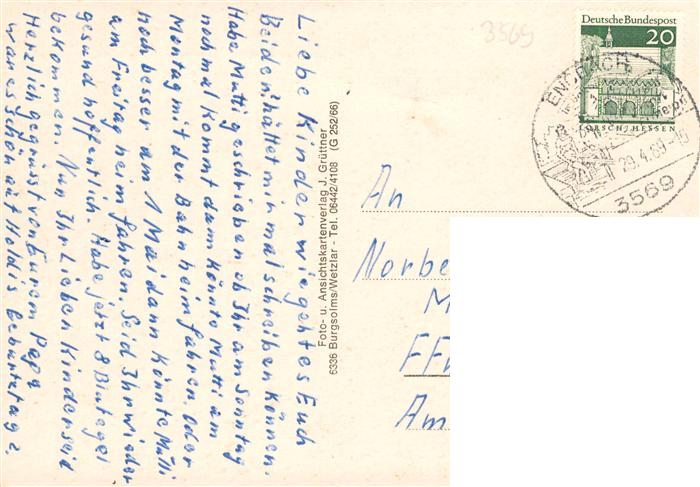 Liebe Kinder wie geht es Euch
Beiden hättet mir mal schreiben können.
Habe Mutti geschrieben ob Ihr am Sonntag
noch mal kommt dann könnte Mutti am
Montag mit der Bahn heim fahren. Oder
noch besser am 1 Mai dann könnte Mutti
am Freitag heim fahren. Seid Ihr wieder
gesund hoffentlich. Habe jetzt 8 Blutegel
bekommen. Nun Ihr Lieben Kinder seid
Herzlich gegrüsst von Eurem Papa
war es schön auf Holdis Geburtztag?
Foto- u. Ansichtskartenverlag J. Grüttner
6336 Burgsolms/Wetzlar - Tel. 06442/4108 (G 252/66)
3569
Deutsche Bundespost
20
LORSCH/HESSEN
ENDBACH
29.4.69
3569
An
Norbe
M
FF
Am